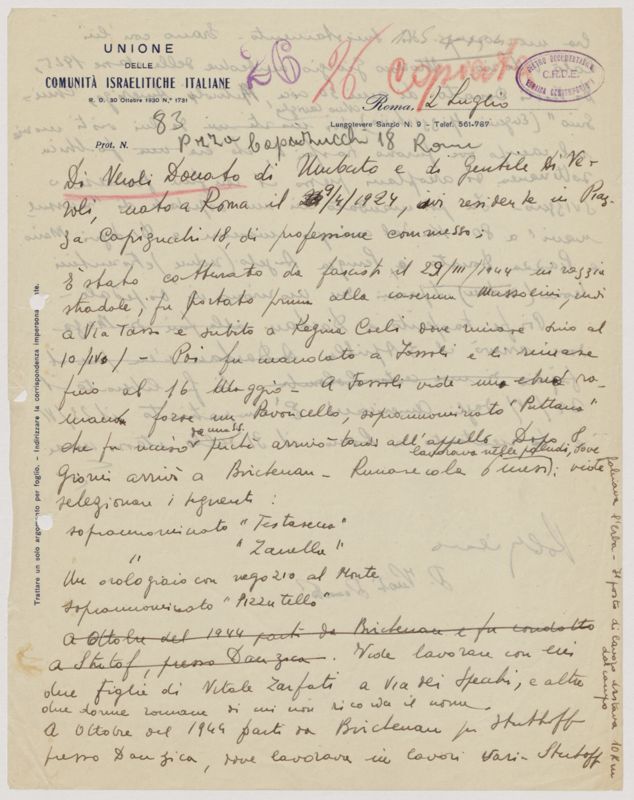 UNIONE
DELLE
COMUNITÀ ISRAELITICHE ITALIANE
R. D. 30 Ottobre 1930 N.° 1731
26
26 Copiato
CENTRO DOCUMENTAZIONE
C.R.D.E.
EBRAICA CONTEMPORANEA
Roma, 2 Luglio
Lungotevere Sanzio N. 9 - Telef. 561-787
Prot. N. 83
Pzza Capizzucchi 18 Roma
Di Veroli Donato di Umberto e di Gentile Di Ve-
roli, nato a Roma il 9/4/1924, ivi residente in Piaz-
za Capizucchi 18, di professione commesso;
È stato catturato da fascisti il 29/III/1944 in raggia
stradale, fu portato prima alla caserma Mussolini, indi
a Via Tasso e subito a Regina Coeli dove rimase sino al
10/IV - Poi fu mandato a Fossoli e li rimase
fino al 16 Maggio - A Fossoli vide un ebreo ro-
mano forse un Pavoncello, soprannominato "Puttana"
che fu ucciso da una SS. perché arrivò tardi all'appello. Dopo 8
giorni arrivò a Birkenau - Rimase cola 6 mesi: vide
lavorava nelle paludi, dove
selezionare i seguenti:
soprannominato "Testasecca"
" "Zanella"
Un orologiaio con negozio al Monte
soprannominato "Pizzutello"
A Ottobre del 1944 partì da Birkenau e fu condotto
a Stutof, presso Danzica. Vide lavorare con lui
due figlie di Vitale Zarfati a Via dei Specchi, e altre
due donne romane di cui non ricorda il nome.
A Ottobre del 1944 partì da Birkenau per Stutthoff
presso Danzica, dove lavorava in lavori vari - Stutoff
falciava l'erba - Il posto di lavoro distava 10 Km
dal campo
Trattare un solo argomento per foglio. - Indirizzare la corrispondenza impersona